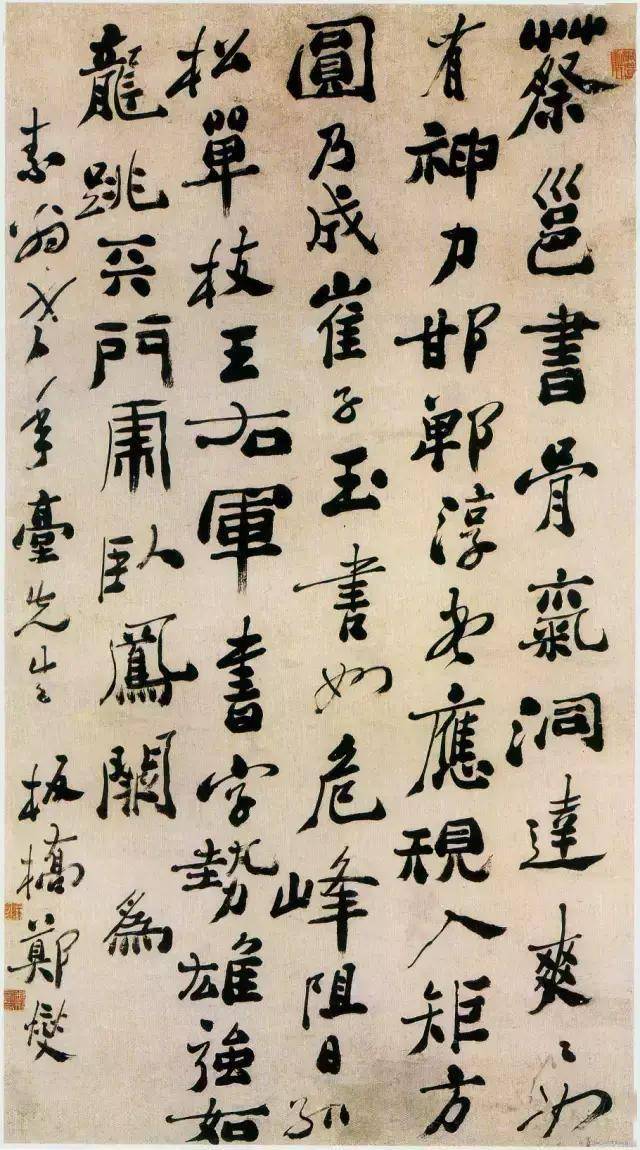 蔡邕書骨氣洞達爽爽如
有神力邯鄲淳書應規入矩方
圓乃成崔子玉書如危峰阻日孤
松單枝王右軍書字勢雄強如
龍跳天門虎臥鳳闕 為
素翁老年臺先生 板橋鄭燮